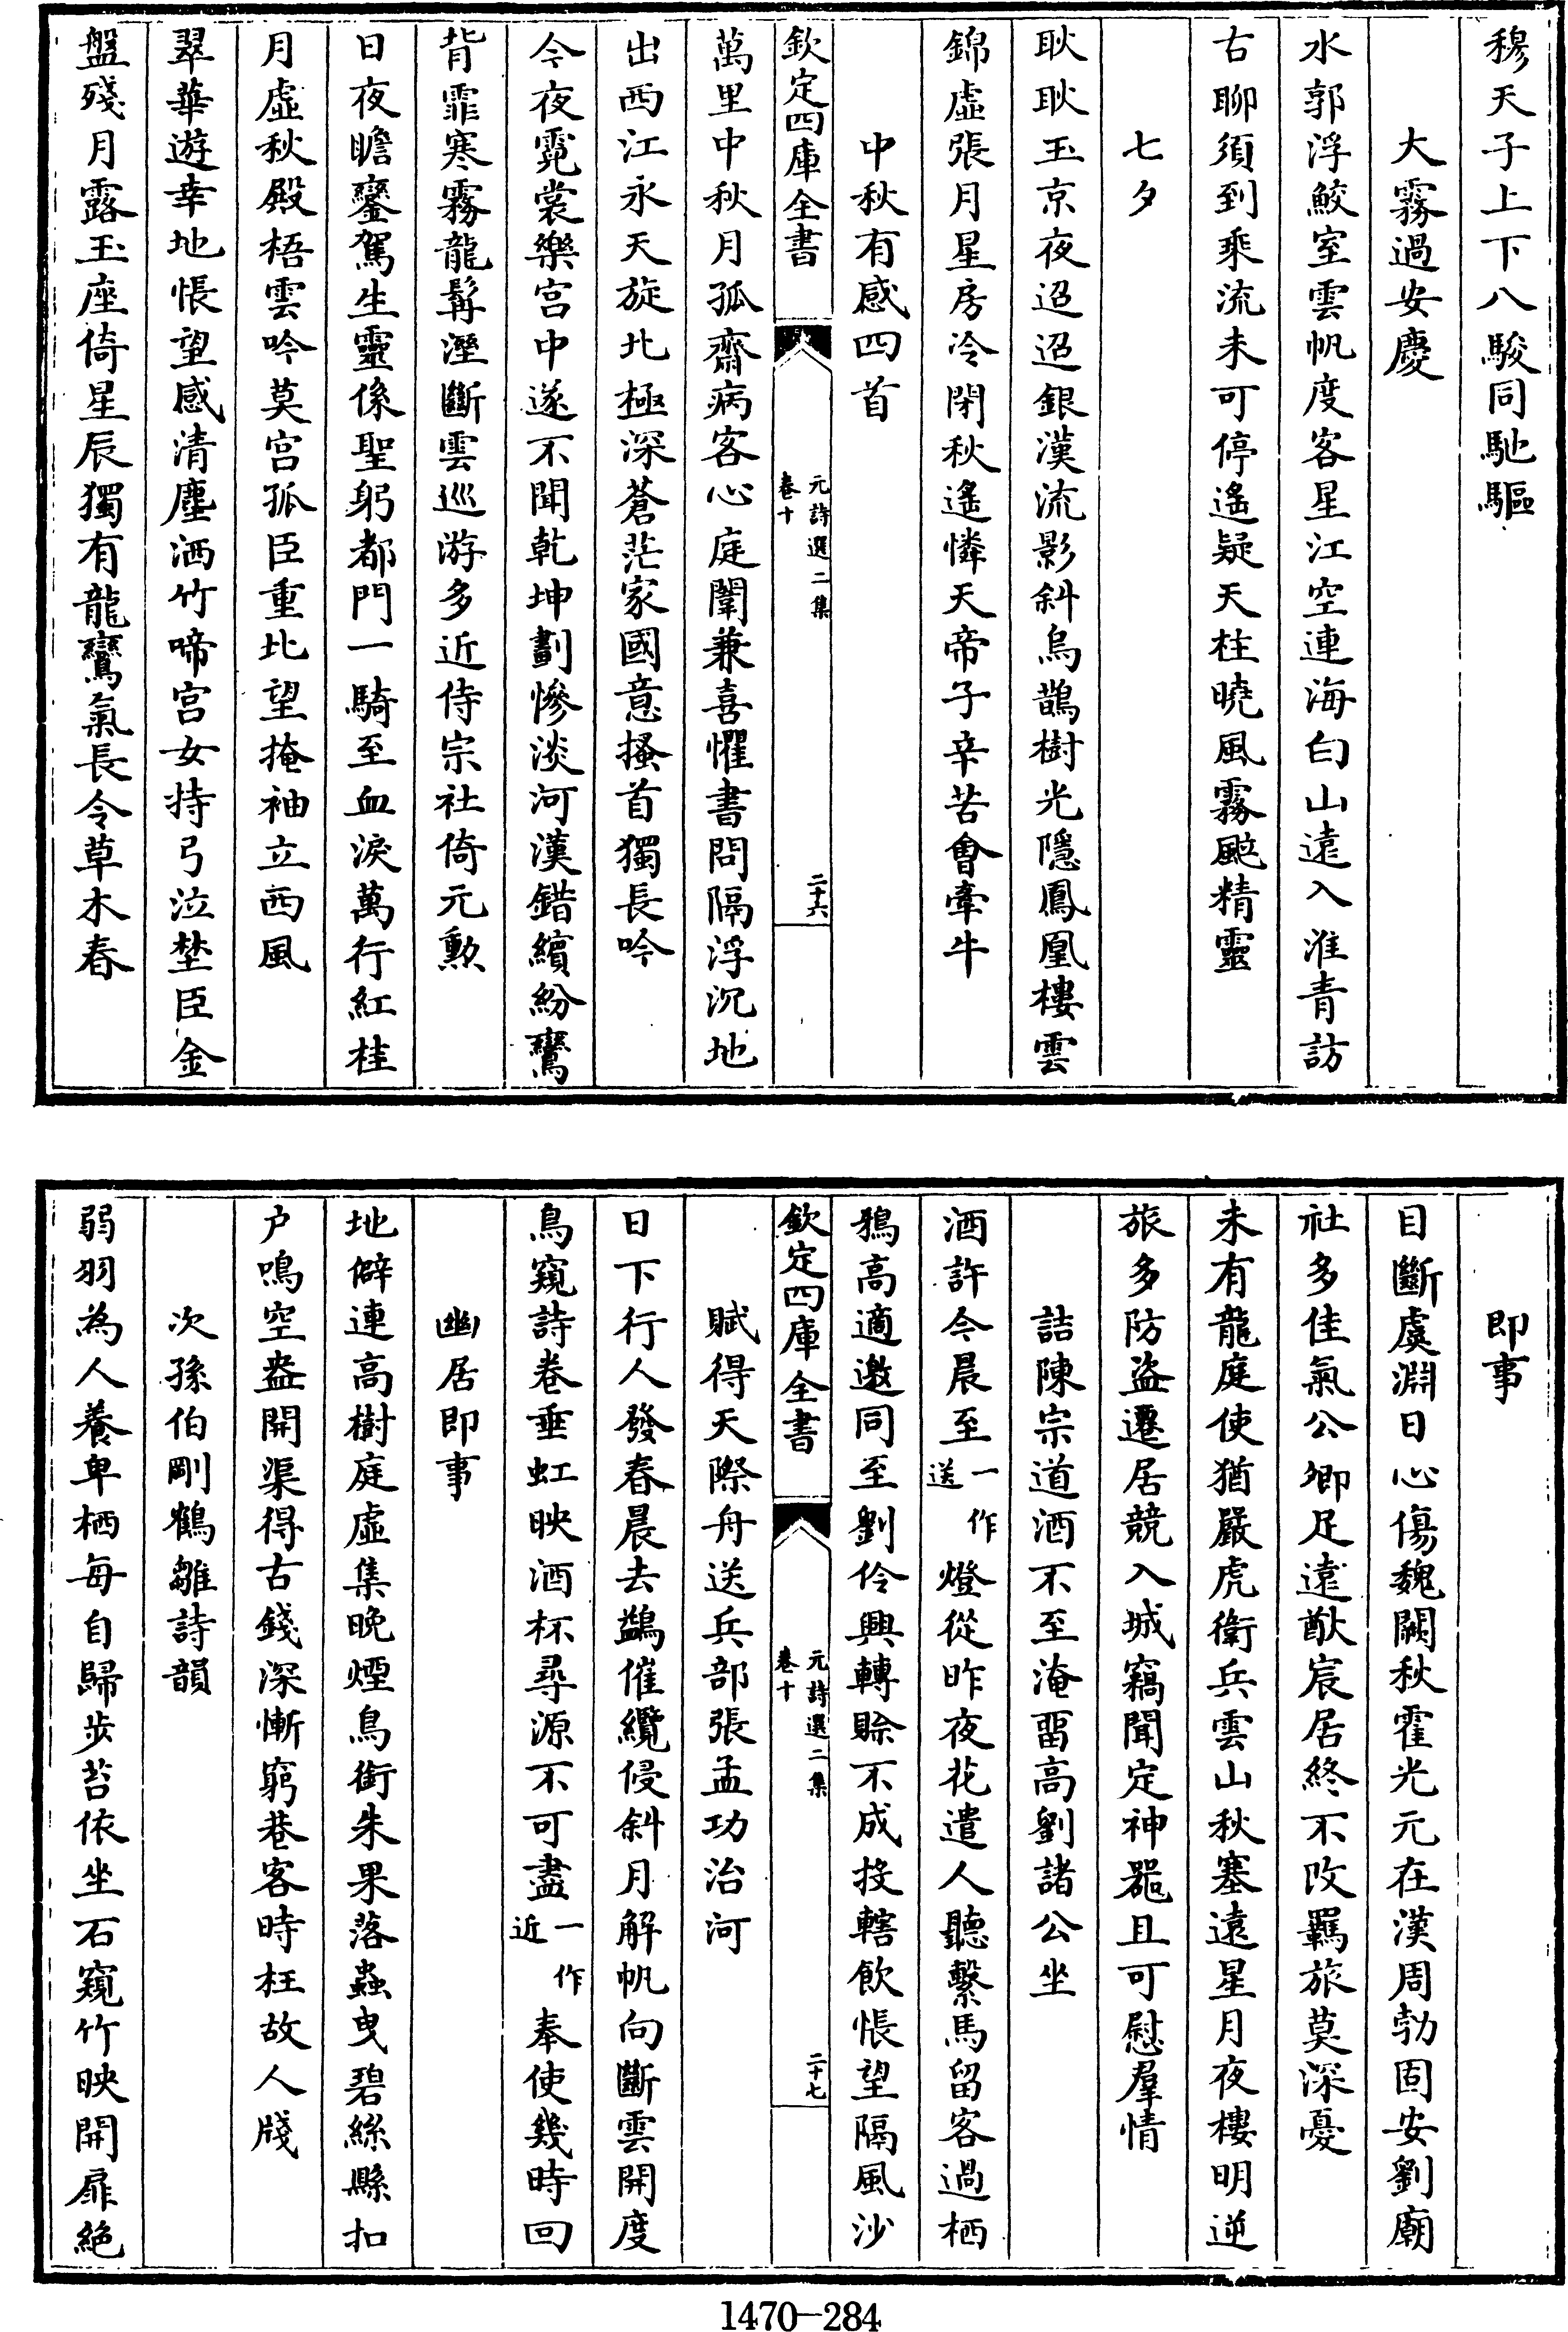 穆天子上下八駿同馳驅
大霧過安慶
水郭浮鮫室雲帆度客星江空連海白山遠入淮青訪
古聊須到乘流未可停遙疑天柱曉風霧颭精靈
七夕
耿耿玉京夜迢迢銀漢流影斜烏鵲樹光隱鳳凰樓雲
錦虛張月星房冷閉秋遙憐天帝子辛苦會牽牛
中秋有感四首
欽定四庫全書
元詩選二集
卷十
二十六
萬里中秋月孤齋病客心庭闈兼喜懼書問隔浮沉地
出西江永天旋北極深蒼茫家國意搔首獨長吟
今夜霓裳樂宮中遂不聞乾坤劃慘淡河漢錯繽紛鸞
背霏寒霧龍髯溼斷雲巡游多近侍宗社倚元勲
日夜瞻鑾駕生靈係聖躬都門一騎至血淚萬行紅桂
月虛秋殿梧雲吟莫宮孤臣重北望掩袖立西風
翠華遊幸地悵望感清塵洒竹啼宮女持弓泣埜臣金
盤殘月露玉座倚星辰獨有龍鸞氣長令草木春
即事
目斷虞淵日心傷魏闕秋霍光元在漢周勃固安劉廟
社多佳氣公卿足遠猷宸居終不改羈旅莫深憂
未有龍庭使猶嚴虎衛兵雲山秋塞遠星月夜樓明逆
旅多防盜遷居競入城竊聞定神噐且可慰羣情
詰陳宗道酒不至淹畱高劉諸公坐
酒許今晨至一作送燈從昨夜花遣人聽繫馬留客過栖
鵶高適邀同至劉伶興轉賒不成投轄飲悵望隔風沙
欽定四庫全書
元詩選二集
卷十
二十七
賦得天際舟送兵部張孟功治河
日下行人發春晨去鷁催纜侵斜月解帆向斷雲開度
鳥窺詩卷垂虹映酒杯尋源不可盡一作近奉使幾時回
幽居即事
地僻連高樹庭虛集晚煙鳥銜朱果落蟲曳碧絲縣扣
户鳴空盎開渠得古錢深慚窮巷客時枉故人牋
次孫伯剛鶴雛詩韻
弱羽為人養卑栖每自歸步苔依坐石窺竹映開扉絕
1470—284